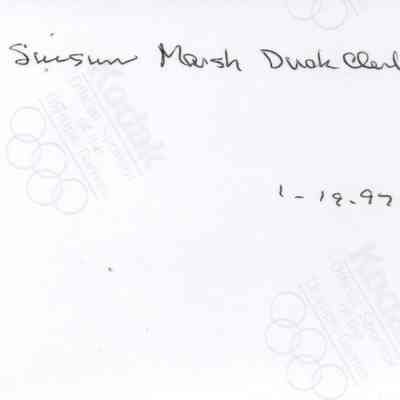 Suisun Marsh Duck Club
1-19-97
Kodak
Official Sponsor
of the
Olympic Games
Kodak
Official Sponsor
of the
Olympic Games